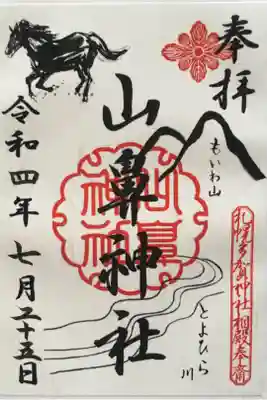 奉拝
もいわ山
札幌多賀神社相殿奉斎
山鼻神社
とよひら川
令和四年 七月二十五日